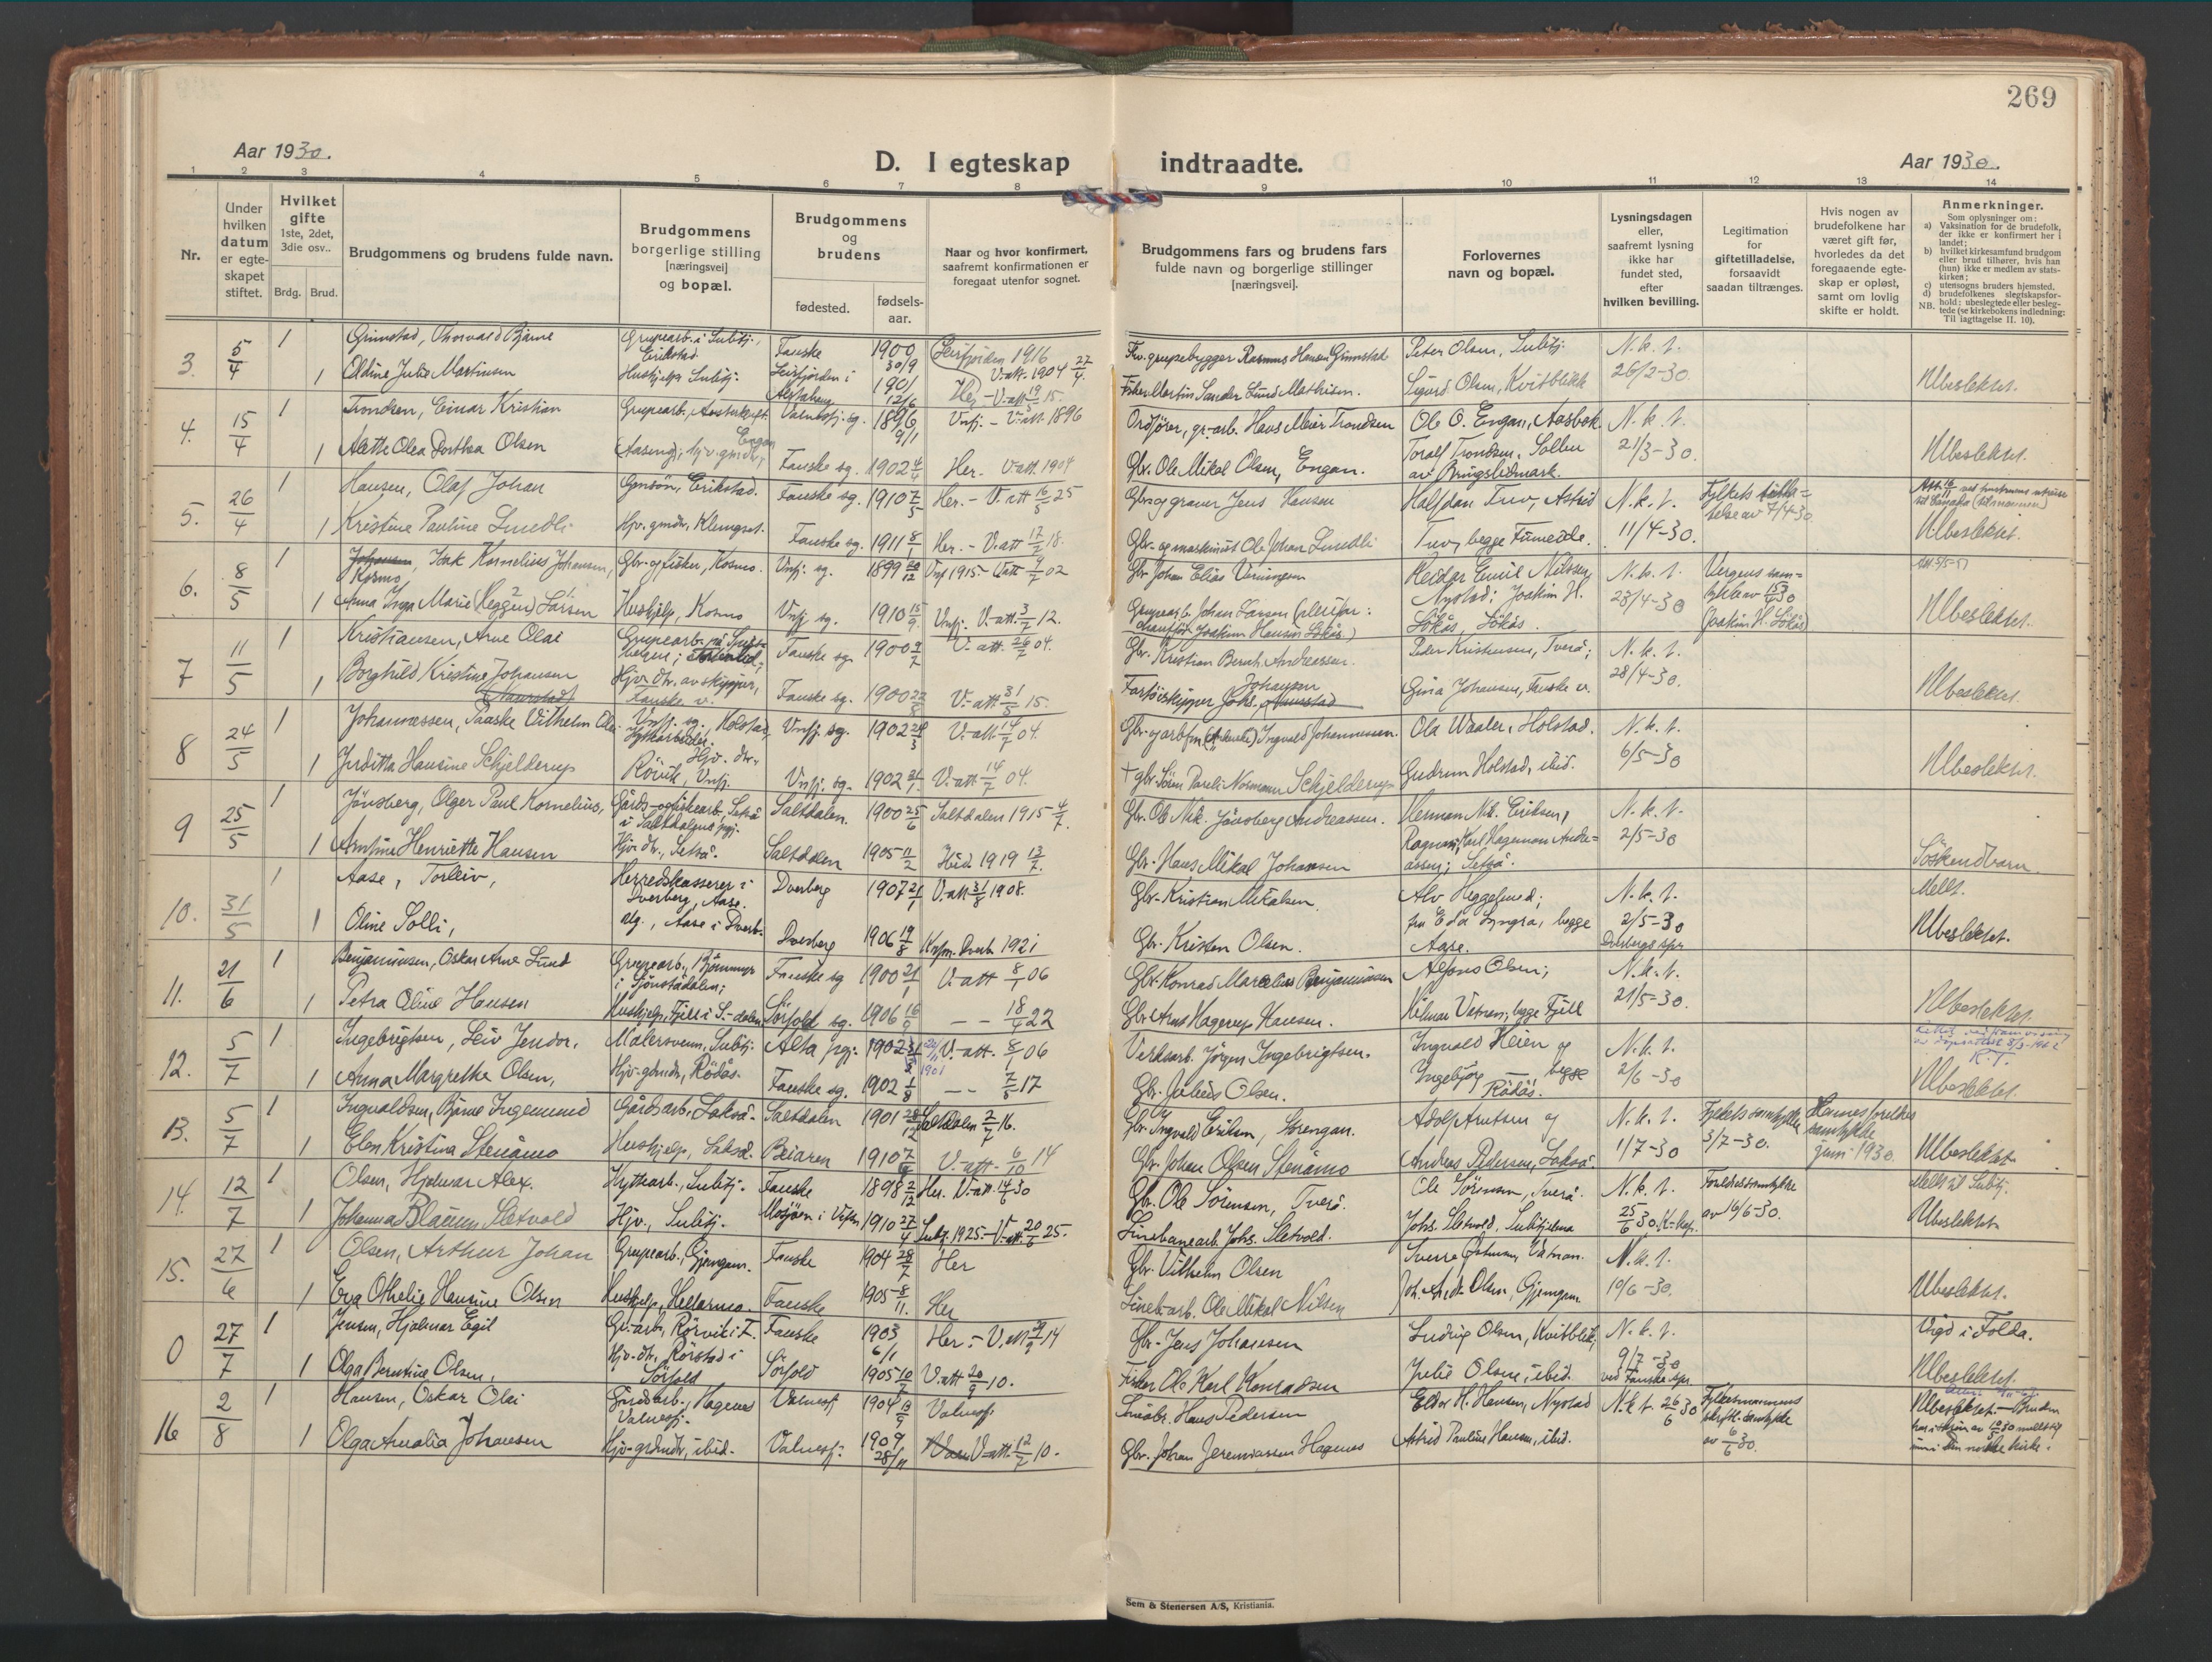 269
Aar 1930.
D. I egteskap indtraadte.
Aar 1930.
1 2 3 4 5 6 7 8 9 10 11 12 13 14
Nr.
Under hvilken datum er egte-skapet stiftet.
Hvilket gifte 1ste, 2det, 3die osv..
Brdg. Brud.
Brudgommens og brudens fulde navn.
Brudgommens borgerlige stilling [næringsvei] og bopæl.
Brudgommens og brudens
fødested.
fødsels-aar.
Naar og hvor konfirmert, saafremt konfirmationen er foregaat utenfor sognet.
Brudgommens fars og brudens fars fulde navn og borgerlige stillinger [næringsvei].
Forlovernes navn og bopæl.
Lysningsdagen eller, saafremt lysning ikke har fundet sted, efter hvilken bevilling.
Legitimation for giftetilladelse, forsaavidt saadan tiltrænges.
Hvis nogen av brudefolkene har været gift før, hvorledes da det foregaaende egte-skap er opløst, samt om lovlig skifte er holdt.
Anmerkninger.
Som oplysninger om:
a) Vaksination for de brudefolk, der ikke er konfirmert her i landet;
b) hvilket kirkesamfund brudgom eller brud tilhører, hvis han (hun) ikke er medlem av stats-kirken;
c) utensogns bruders hjemsted.
d) brudefolkenes slegtskapsfor-hold: ubeslegtede eller besleg-tede (se kirkebokens indledning: Til iagttagelse II. 10).
NB.
3. 5/4 1 Grimstad, Thorvald Bjarne Grupearb. i Sulitj., Erikstad Fauske 1900 30/9 Leirfjorden 1916 V.att. 1904 27/4. Fhv. grupebygger Rasmus Hansen Grimstad Peter Olsen, Sulitj. N.k.t.
1 Oldine Julie Martinsen Hushjelp Sulitj. Leirfjorden i Alstahaug 1901 12/6 Her - V.att 19/ 15. Fisker Martin Sander Lund Mathisen. Sigurd Olsen, Kvitblikk 26/2-30 Ubeslektet.
4. 15/4 1 Trondsen, Einar Kristian Grupearb., Valnesfj. sg. 1896 9/1 Vnfj. - V.att. 1896 Ordfører, gr.arb. Hans Meier Trondsen Ole O. Engan, Aasbak. N.k.t.
1 Alette Olea Dorthea Olsen Engan Fauske sg. 1902 4/4 Her. V.att 1904 Gbr. Ole Mikal Olsen, Engan. Toralf Trondsen, 21/3-30. Ubeslektet.
5. 26/4 1 Hansen, Olaf Johan Gmsøn, Erikstad. Fauske sg. 1910 7/5 Her. - V.att 16/5 25 Gbr. og graver Jens Hansen Halfdan Tuv, Astrid N.k.t. Fylkets av 7/4-30
1 Kristine Pauline Lundli Hjv. gmdtr., Klungset. Fauske sg. 1911 8/1 Her. - V.att 17/2 18. Gbr. og maskinist Ole Johan Lundli Tuv, begge Finneide. 11/4-30. Ubeslektet.
6. 8/5 1 Johansen, Isak Kornelius Johansen, Kosmo Gbr. og fisker, Kosmo. Vnfj. sg. 1899 20/12 Vnfj 1915 - V.att 9/7 02 Gbr. Johan Elias Heidar Emil Nilssen, Nystad; Joakim H. N.k.t. Vergens sam-tykke av 15/4 30
1 Anna Inga Marie (Heggen) Larsen Hushjelp, Kosmo Vnfj. sg. 1910 15/9 Vnfj. V.att. 3/7 12. Grupearb. Johan Larsen Løkås, Løkås. 23/4-30 (Joakim H. Løkås) Ubeslektet.
7 11/5 1 Kristiansen, Arne Olai Grupearb. på Fauske sg. 1900 7/7 V.att. 26/7 04. Gbr. Kristian Bernh. Andreassen. Peder Kristensen, Tverå; N.k.t.
1 Borghild Kristine Johansen Hjv. dtr. av skipper, Fauske v. Fauske sg. 1900 V.att 31/5 15. Fartøiskipper Johs. Johansen Gina Johansen, Fauske v. 28/4-30. Ubeslektet.
8 24/5 1 Johannessen, Paaske Vilhelm Vnfj. sg., Holstad, Vnfj. sg. 1902 V.att 14/7 04. Gbr. og arb.fm. Ingvald Johannessen. Ola Waaler, Holstad. N.k.t.
1 Jorditta Hansine Schjelderup Hjv. dtr., Røvik, Vnfj. Vnfj. sg. 1902 31/1 V.att. 14/7 04. † gbr. Søren Pareli Normann Schjelderup Gudrun Holstad, ibid. 6/5-30 Ubeslektet.
9 25/5 1 Jønsberg, Olger Paul Kornelius, Gårds- og fiskearb., Setså i Saltdalens pgj. Saltdalen. 1900 25/6 Saltdalen 1915 4/7. Gbr. Ole Nik. Jønsberg Andreassen. Herman Nik. Eriksen, N.k.t.
1 Arntine Henriette Hansen Hjv. dtr., Setså. Saltdalen 1905 11/2 Ibid. 1919 13/7. Gbr. Hans Mikal Johansen Ragnar Karl Hageman Andre-assen; Setså. 2/5-30 Søskendbarn.
10. 31/5 1 Aase, Torleiv, Herredskasserer i Dverberg, Aase. Dverberg 1907 21/1 V.att 31/8 1908. Gbr. Kristian Mikalsen. Alv Heggelund; N.k.t. Mellt.
1 Oline Solli, Aase i Dverb. Dverberg 1906 19/8 Konf. Dverb. 1921 Gbr. Kristen Olsen. fru Eda Lyngra, begge Aase. 2/5-30 Dverbergs spr. Ubeslektet.
11. 21/6 1 Benjaminsen, Oskar Arne Lund Grupearb., Bjørnmyr i Sjønstådalen; Fauske sg 1900 21/1 V.att 8/1 06 Gbr. Konrad Marcelius Benjaminsen Alfons Olsen; N.k.t.
1 Petra Oline Hansen Hushjelp, Fjell i S.-dalen Sørfold sg. 1906 16/9 - - 18/4 22 Gbr. Arnt Hagerup Hansen. Hilmar Vatnan, begge Fjell 21/5-30. Ubeslektet.
12. 5/7 1 Ingebrigtsen, Leiv Jendor, Malersvenn, Sulitj. Alta pgj. 1902 1901 V.att. 8/1 06 Verksarb. Jørgen Ingebrigtsen. Ingvald Heien og N.k.t. R.T.
1 Anna Margrethe Olsen, Hjv. gbrdtr., Rødås. Fauske sg. 1902 1/8 - - 7/5 17 Gbr. Julius Olsen. Ingebjørg — begge Rødås. 2/6-30 Ubeslektet.
13. 5/7 1 Ingvaldsen, Bjarne Ingemund Gårdsarb., Lakså. Saltdalen 1901 28/12 Saltdalen 2/7 16. Gbr. Ingvald Eriksen, Storengan. Adolf Arntsen og N.k.t. Fylkets samtykke 3/7-30. Hennes foreldres samtykke juni 1930.
1 Elen Kristina Stenåmo Hushjelp, Lakså. Beiaren 1910 V.att. 6/10 14 Gbr. Johan Olsen Stenåmo Andreas Pedersen, Lakså. 1/7-30 Ubeslektet.
14. 12/7 1 Olsen, Hjalmar Alex. Hyttearb., Sulitj. Fauske 1898 2/12 Her. V.att. 14/6 30 Gbr. Ole Sørensen, Tverå. Ole Sørensen, Tverå. N.k.t. Foreldresamtykke av 16/6-30. Mellt til Sulitj.
1 Johanna Blaun Sletvold Hjv., Sulitj. Mosjøen i Vefsn. 1910 27/4 Sulitj. 1925. - V.att. 20/6 25. Linebanearb. Johs. Sletvold. Johs. Sletvold, Sulitjelma 25/6 30. Ubeslektet
15. 27/6 1 Olsen, Arthur Johan Grupearb., Gjemgam. Fauske 1904 28/7 Her Gbr. Vilhelm Olsen Sverre Østensen, Vatnan. N.k.t.
1 Eva Othelie Hansine Olsen Hushjelp, Hellarmo. Fauske 1905 8/11. Her Lineb.arb. Ole Mikal Nilsen Joh. Arndt Olsen, Gjemgam. 10/6-30. Ubeslektet.
0 27/7 1 Jensen, Hjalmar Egil Gr.-arb., Rørvik i F. Fauske 1903 6/1 Her. - V.att 14 Gbr. Jens Johansen Ludvig Olsen, Kvitblik, N.k.t. Vigd i Folda.
1 Olga Berntine Olsen, Hjv. dtr., Rørstad i Sørfold Sørfold 1905 10/7 V.att 20/9 10. Fisker Ole Karl Konradsen Julie Olsen, ibid. 9/7-30 ved Fauske spr. Ubeslektet.
16 2/8 1 Hansen, Oskar Olai Gårdsarb., Hagenes Valnesfj. Valnesfj 1904 Valnesfj. Småbr. Hans Pedersen Eldor H. Hansen, Nystad N.k.t. 26/6 30 Fylkesmannens skriftl. samtykke av 6/6 30. Ubeslektet. - Bruden
1 Olga Amalia Johansen Hjv. grdmdtr., ibid. Valnesfj. 1909 28/11 V.att. 12/7 10. Gbr. Johan Jeremiassen Hagenes Astrid Pauline Hansen, ibid. inn i den norske kirke.
Sem & Stenersen A/S, Kristiania.